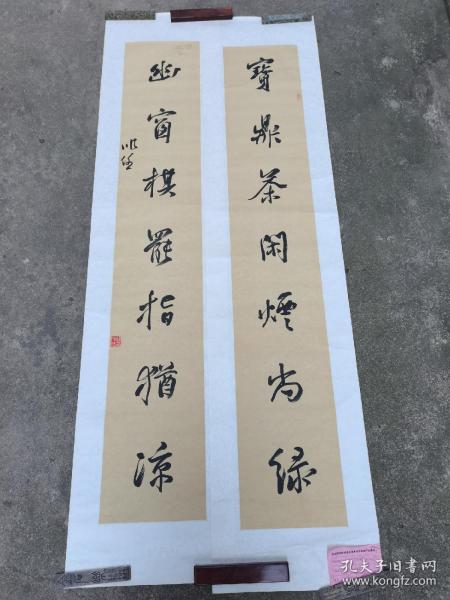 寶鼎茶閑煙尚緑
幽窗棋罷指猶涼
孔夫子旧书网
www.kongfz.com